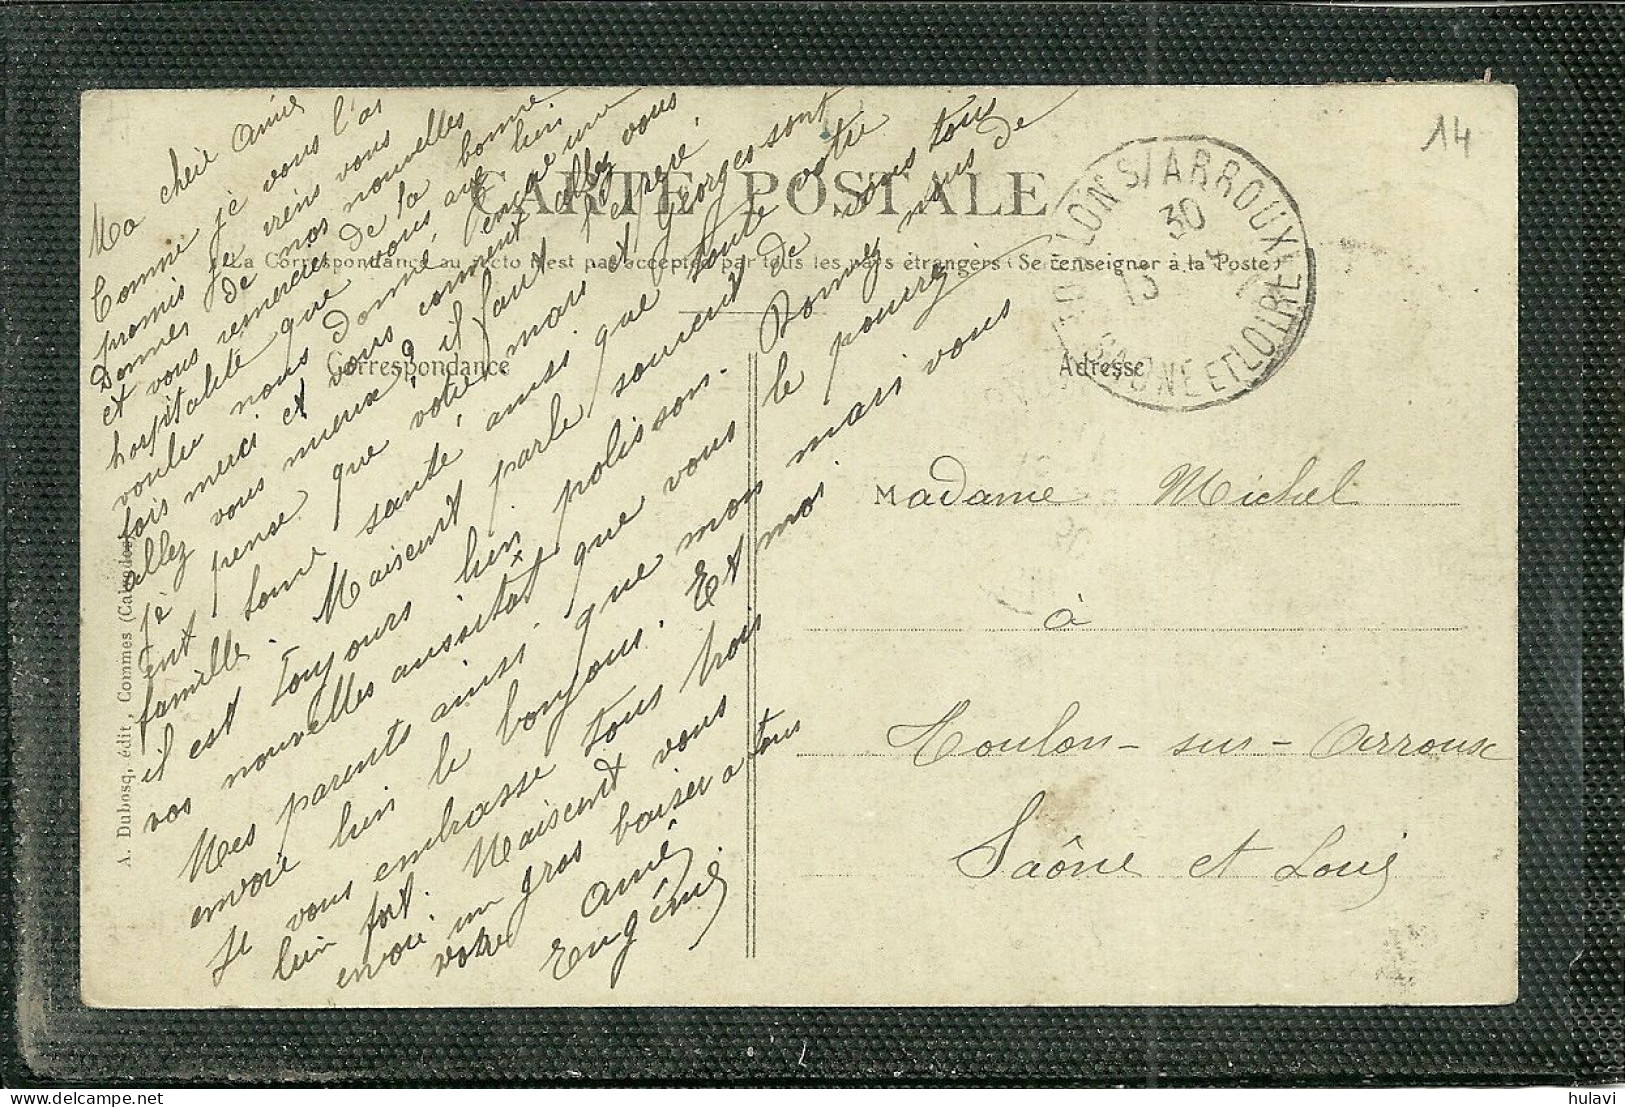 14
CARTE POSTALE
La Correspondance au recto n'est pas acceptée par tous les pays étrangers (Se renseigner à la Poste)
Correspondance
Adresse
TOULON S/ARROUX
30
13
SAONE ET LOIRE
Ma cheie amie
Comme je vous l'ai
promis je viens vous
Donner de nos nouvelles
et vous remercier de la bonne
hospitalité que nous avé bien
voulu nous donné, encore une
fois merci et vous comment allez vous
allez vous mieux? il faut l'espéré,
je pense que votre mari et Georges sont
ent bonne santé, ainsi que toute votre
famille. Maiscent parle souvent de vous tous
il est toujours bien polisson. Donnez nous de
vos nouvelles aussitôt que vous le pourez
Mes parents ainsi que mon mari vous
envoie bien le bonjour. Et moi
Je vous embrasse tous trois
bien fort. Maiscent vous
envoie un gros baiser a tous
votre amie
Eugénie.
Madame Michel
à
Toulon-sur-Arroux
Saône et Loire
A. Dubosq, édit., Commes (Calvados)
hulavi